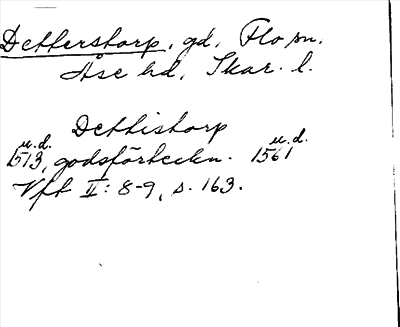 Detterstorp, gd, Flo sn.
Åse hd, Skar. l.
Dettistorp
u.d. u.d.
1513, godsförteckn. 1561
Vft II: 8-9, s. 163.